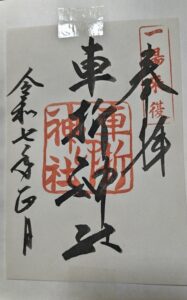 一陽来復
奉拝
車折神社
車折神社
令和七年正月